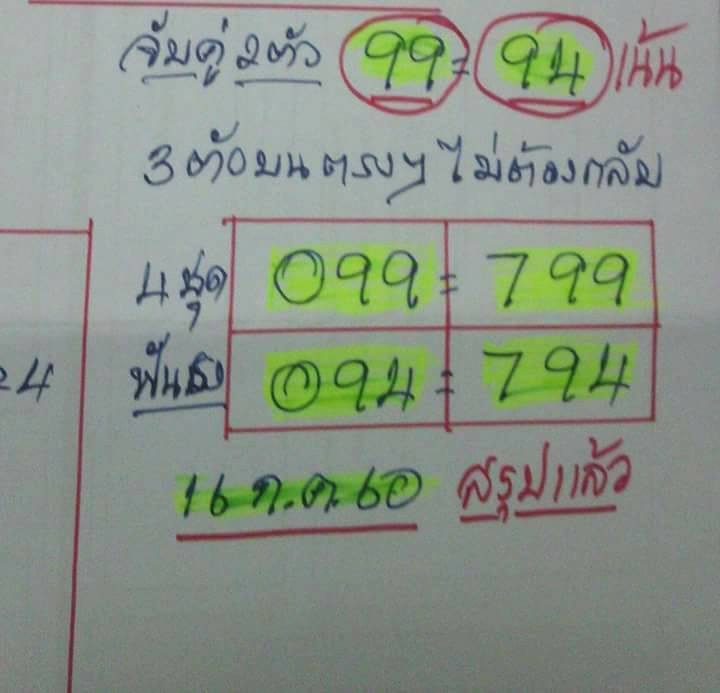 จับคู่ 2ตัว 99 = 94 เน้น
3ตัวบนตรงๆ ไม่ต้องกลับ
4ชุด 099 = 799
ฟันธง 094 = 794
24
16 ก.ค. 60 สรุปแล้ว